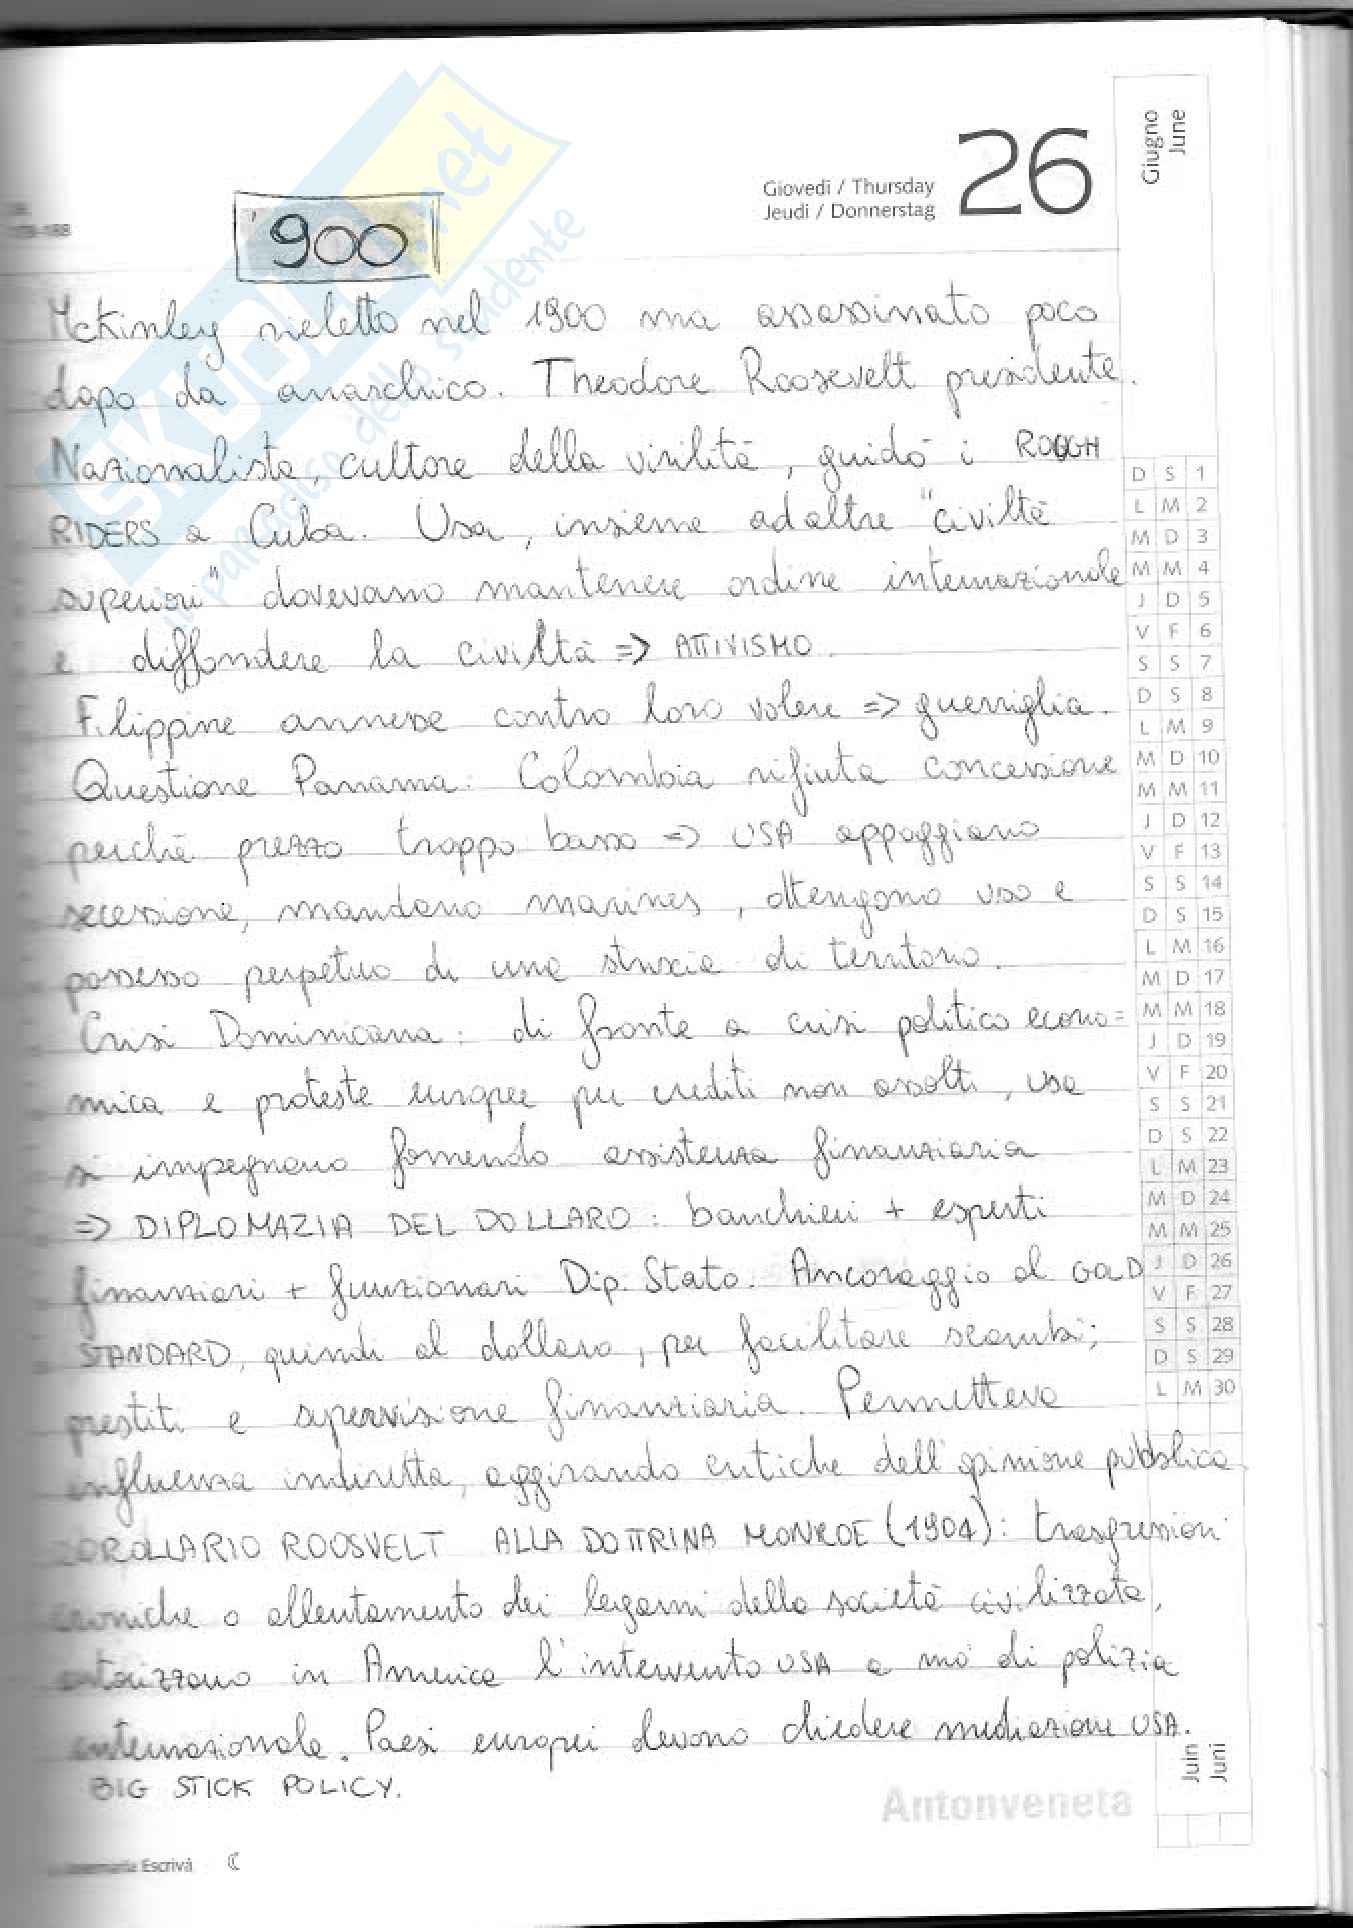 26
Giugno
June
Giovedì / Thursday
Jeudi / Donnerstag
'900
SKUOLA.net
il paradiso dello studente
McKinley rieletto nel 1900 ma assassinato poco
dopo da anarchico. Theodore Roosevelt presidente.
Nazionalista, cultore della virilità, guidò i ROUGH
RIDERS a Cuba. Usa, insieme ad altre "civiltà
superiori" dovevano mantenere ordine internazionale
e diffondere la civiltà => ATTIVISMO.
Filippine annesse contro loro volere => guerriglia.
Questione Panama: Colombia rifiuta concessione
perché prezzo troppo basso => USA appoggiano
secessione, mandano marines, ottengono uso e
possesso perpetuo di una striscia di territorio.
Crisi Dominicana: di fronte a crisi politico econo=
mica e proteste europee per crediti non assolti, usa
si impegnano fornendo assistenza finanziaria
=> DIPLOMAZIA DEL DOLLARO: banchieri + esperti
finanziari + funzionari Dip. Stato. Ancoraggio al GOLD
STANDARD, quindi al dollaro, per facilitare scambi;
prestiti e supervisione finanziaria. Permetteva
influenza indiretta, aggirando critiche dell'opinione pubblica
COROLLARIO ROOSVELT ALLA DOTTRINA MONROE (1904): trasgressioni
croniche o allentamento dei legami della società civilizzata,
autorizzano in America l'intervento USA a mo' di polizia
internazionale. Paesi europei devono chiedere mediazione USA.
BIG STICK POLICY.
D S 1
L M 2
M D 3
M M 4
J D 5
V F 6
S S 7
D S 8
L M 9
M D 10
M M 11
J D 12
V F 13
S S 14
D S 15
L M 16
M D 17
M M 18
J D 19
V F 20
S S 21
D S 22
L M 23
M D 24
M M 25
J D 26
V F 27
S S 28
D S 29
L M 30
Juin
Juni
Antonveneta
Escrivà